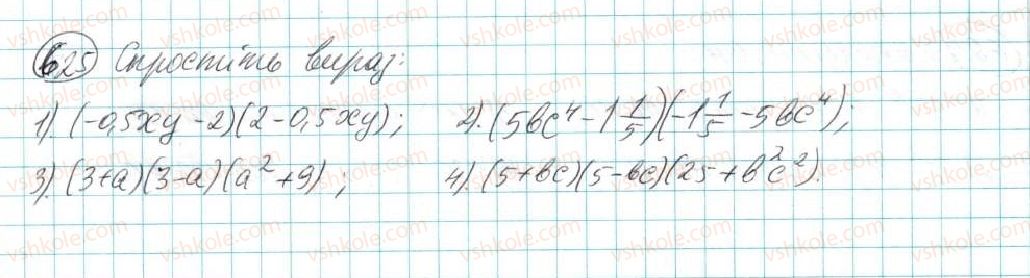 625 Спростіть вираз:
1) (-0,5xy - 2)(2 - 0,5xy); 2). (5bc⁴ - 1 1/5)(-1 1/5 - 5bc⁴);
3). (3+a)(3-a)(a² + 9); 4). (5+bc)(5-bc)(25+b²c²).